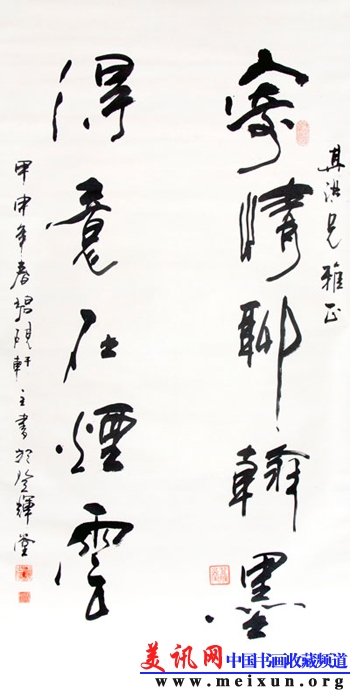 其洪兄雅正
寄情聊翰墨
得意在煙雲
甲申年春硯軒主書於金輝堂
美讯网 中国书画收藏频道
www.meixun.org